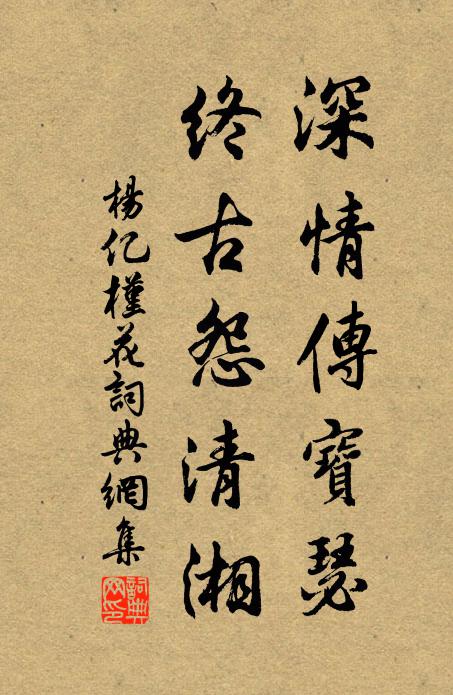 深情傳寶瑟
終古怨清湘
楊億槿花詞典網集
詞典網印